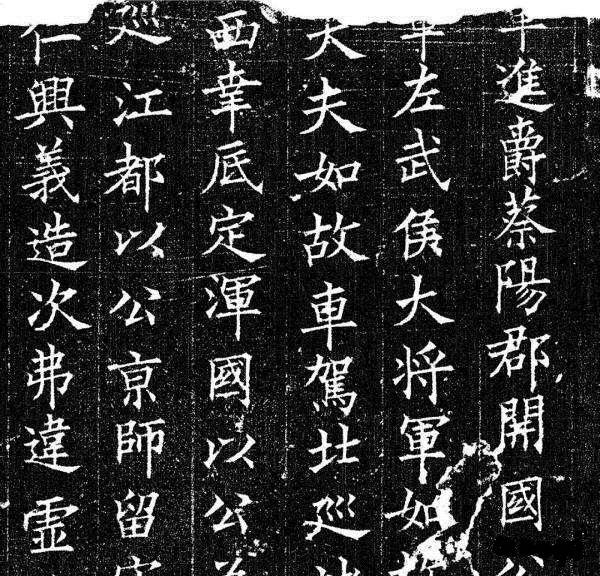 進爵蔡陽郡開國公
左武侯大将軍如故
大夫如故車駕北廵
西幸底定渾國以公
廵江都以公京師留守
仁興義造次弗違霊